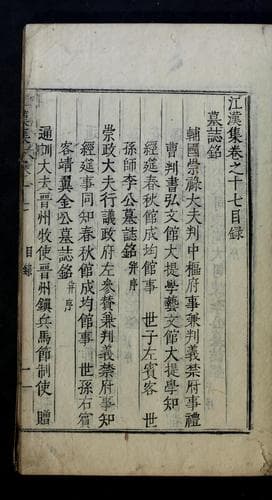 江漢集卷之十七目録
墓誌銘
輔國崇祿大夫判中樞府事兼判義禁府事禮
曹判書弘文館大提學藝文館大提學知
經筵春秋館成均館事 世子左賓客 世
孫師李公墓誌銘 并序
崇政大夫行議政府左參賛兼判義禁府事知
經筵事同知春秋館成均館事 世孫右賓
客靖翼金公墓誌銘 并序
通訓大夫晋州牧使晋州鎭兵馬節制使 贈
目録
一